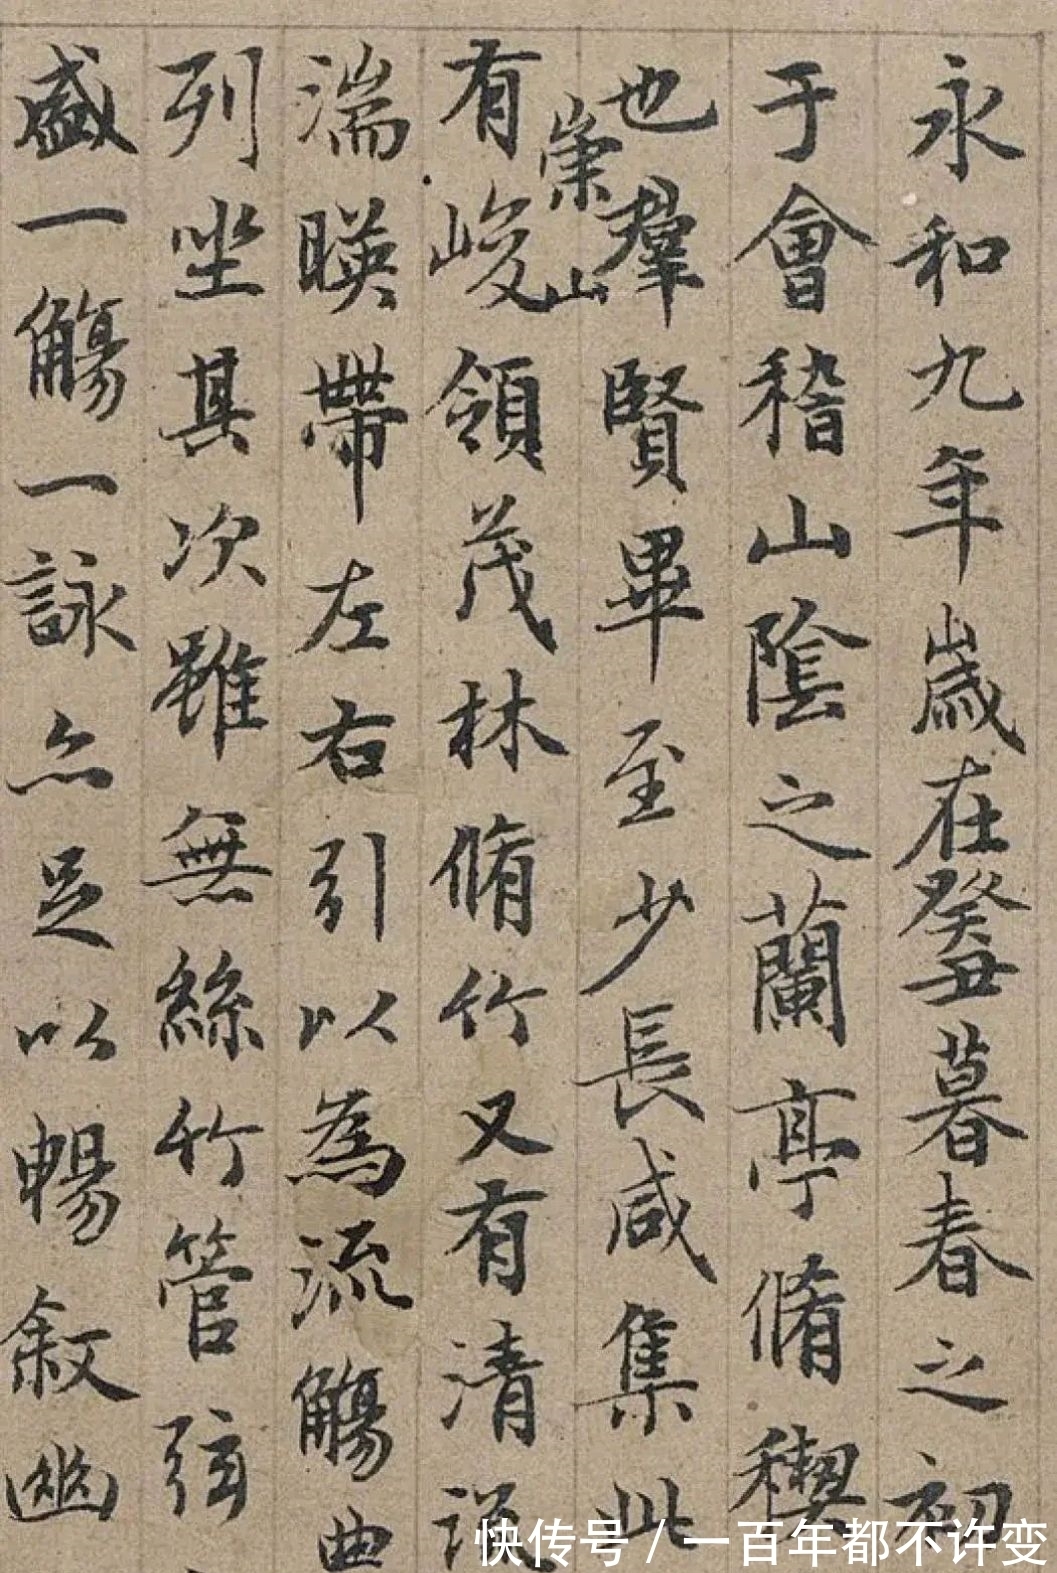 永和九年歲在癸丑暮春之初
于會稽山陰之蘭亭脩稧
也羣賢畢至少長咸集此
崇山
有峻領茂林脩竹又有清
湍暎帶左右引以為流觴曲
列坐其次雖無絲竹管弦
盛一觴一詠亦足以暢敘幽
快传号/一百年都不许变